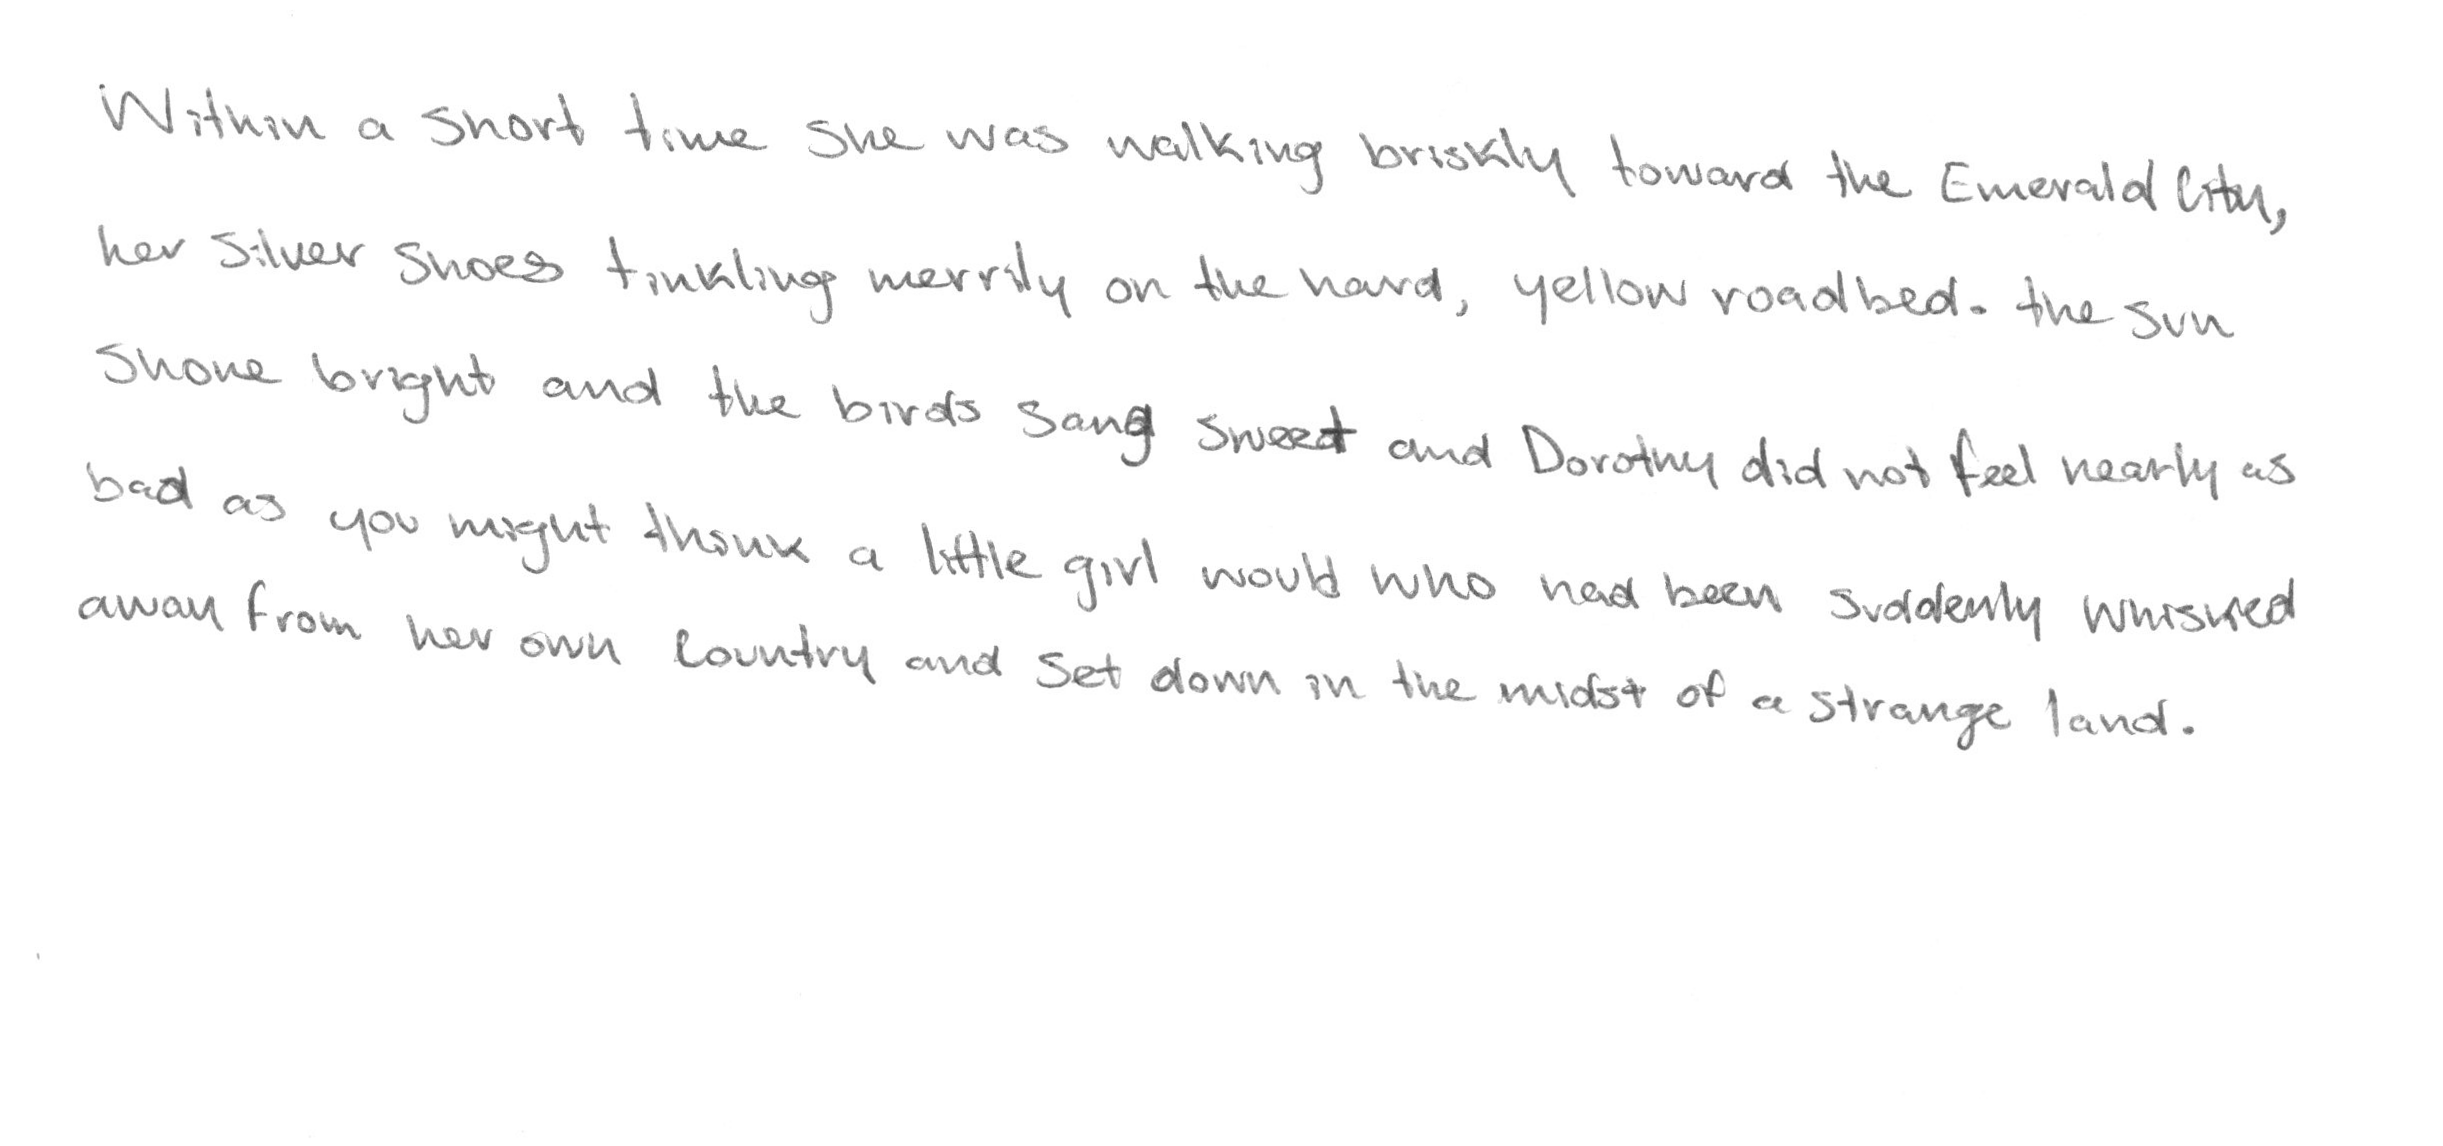 Within a short time she was walking briskly toward the Emerald City,
her silver shoes tinkling merrily on the hard, yellow roadbed. the sun
shone bright and the birds sang sweet and Dorothy did not feel nearly as
bad as you might think a little girl would who had been suddenly whisked
away from her own country and set down in the midst of a strange land.